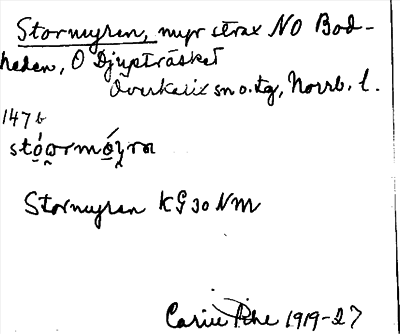 Stormyren, myr strax NO Bod-
heden, O Djupträsket
Överkalix sn o. tg, Norrb. l.
147 b
Stormyran KG 30 NM
Carin Pihl 1919-27